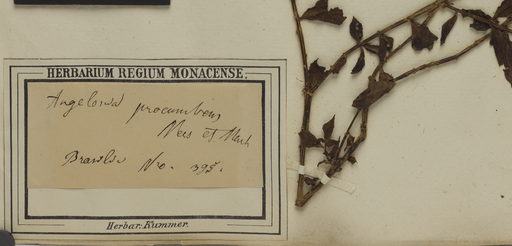 HERBARIUM REGIUM MONACENSE.
Angelonia procumbens
Nees et Mart
Brasilia No. 395.
Herbar. Kummer.